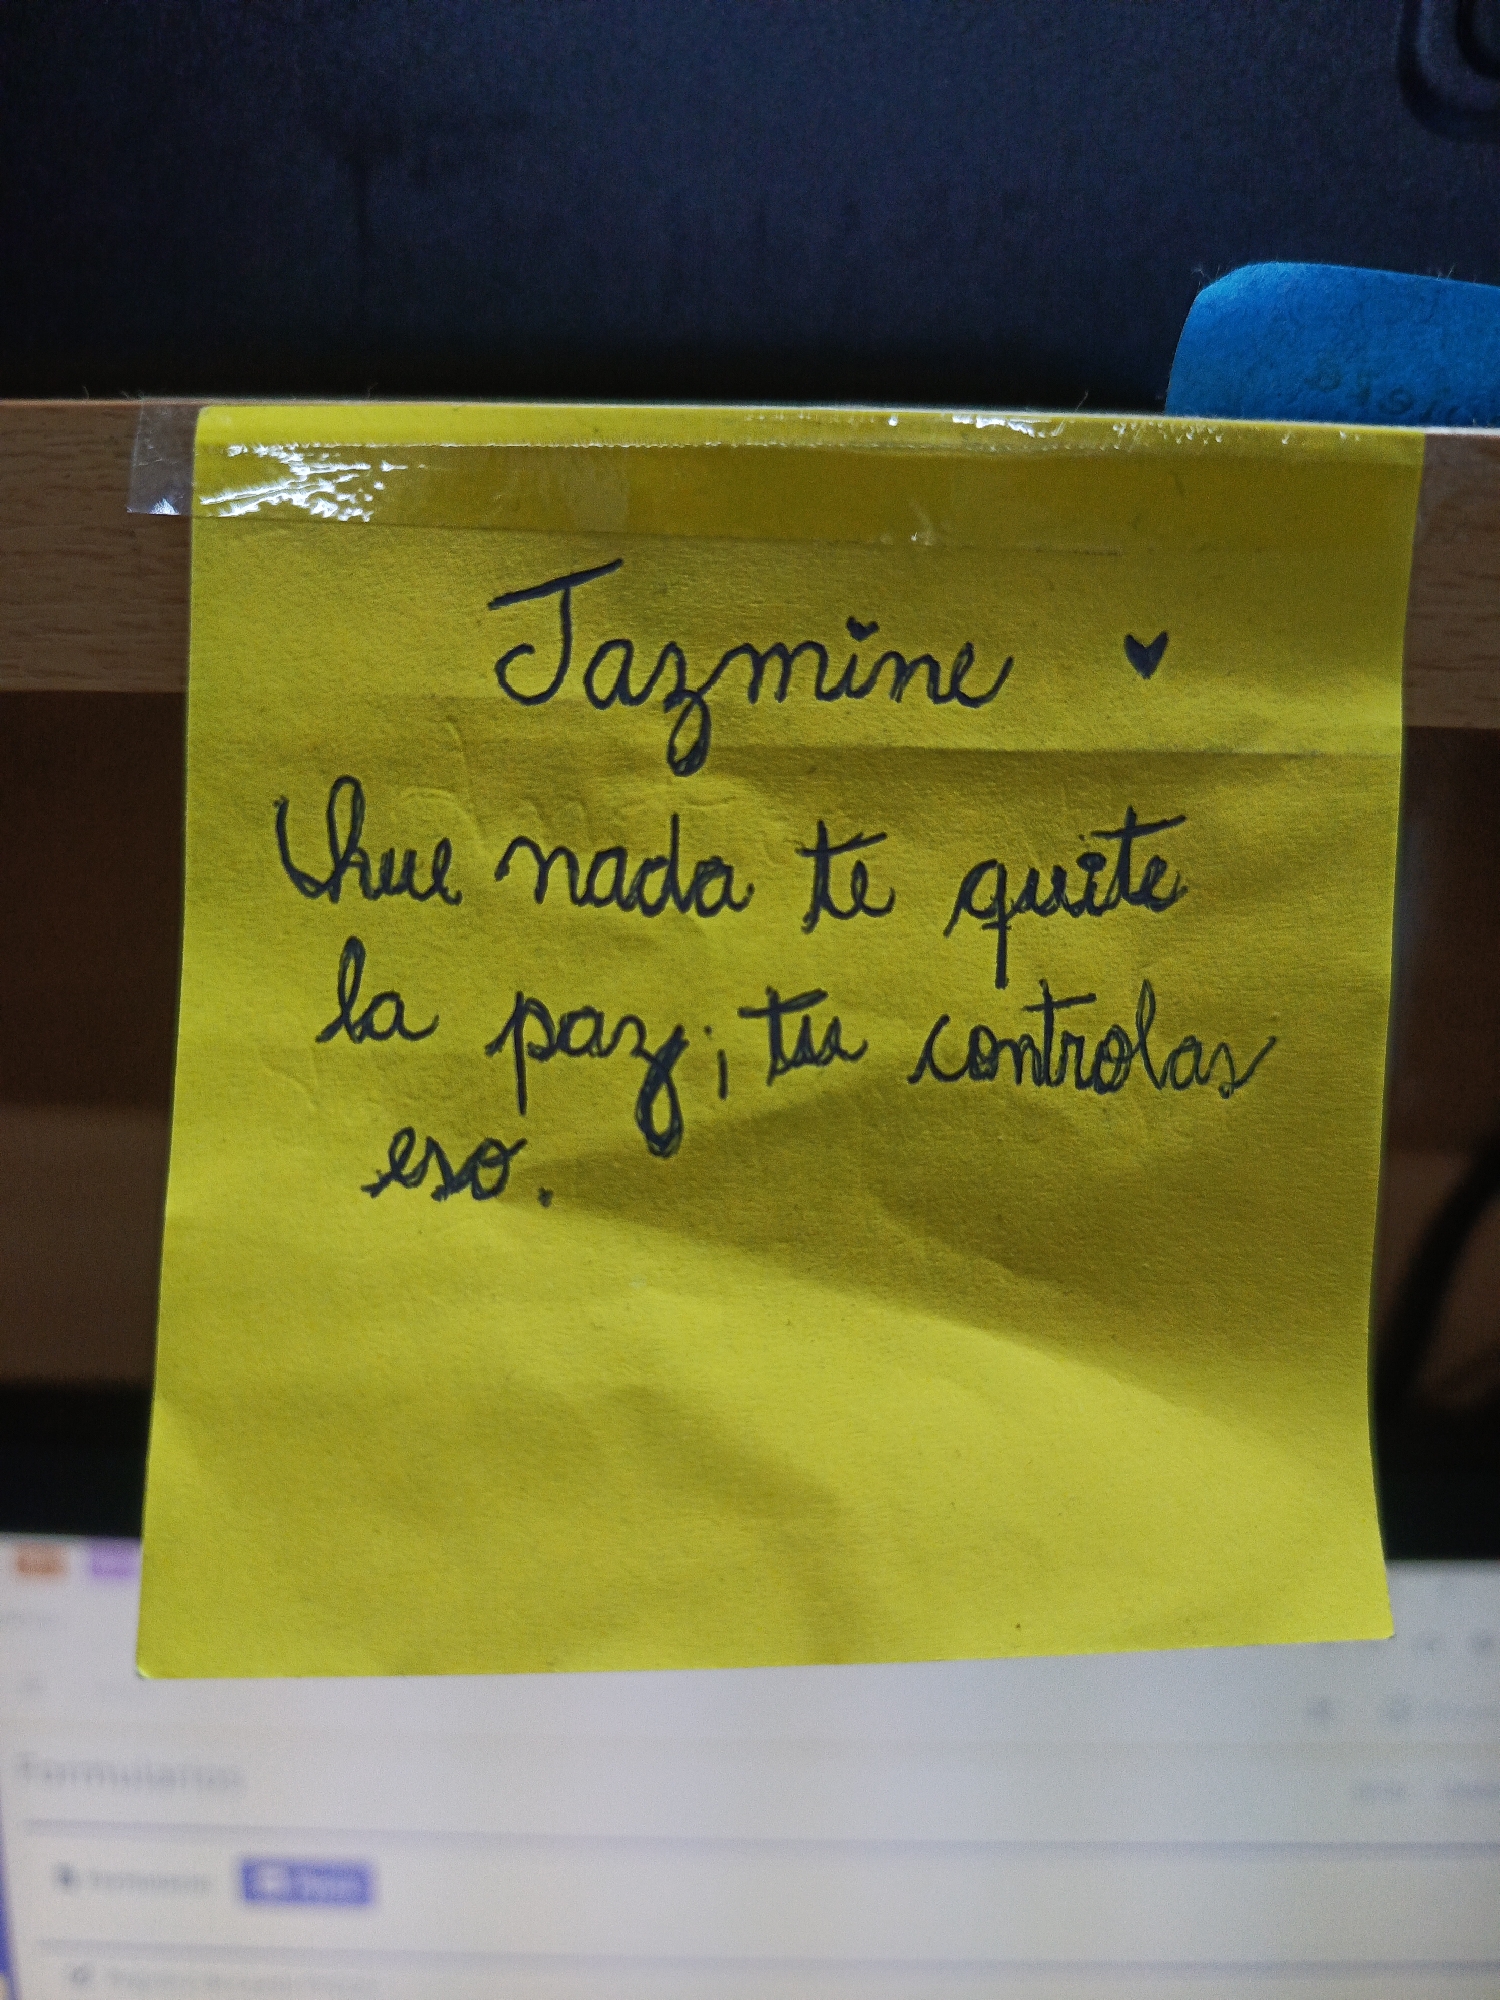 Jazmine ♥
Que nada te quite
la paz; tu controlas
eso.
Formularios